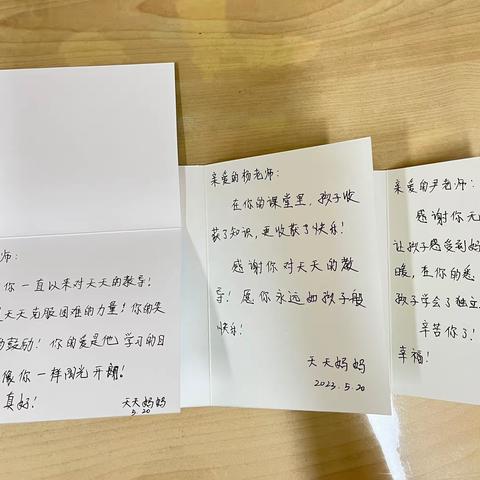 师：
你一直以来对天天的教导！
天天克服困难的力量！你的笑
鼓励！你的爱是他学习的目
像你一样阳光开朗。
真好！
天天妈妈
5.20
亲爱的杨老师：
在你的课堂里，孩子收
获了知识，更收获了快乐！
感谢你对天天的教
导！愿你永远如孩子般
快乐！
天天妈妈
2023.5.20
亲爱的尹老师：
感谢你无
让孩子感受到妈
暖，在你的悉
孩子学会了独立
辛苦你了！
幸福！